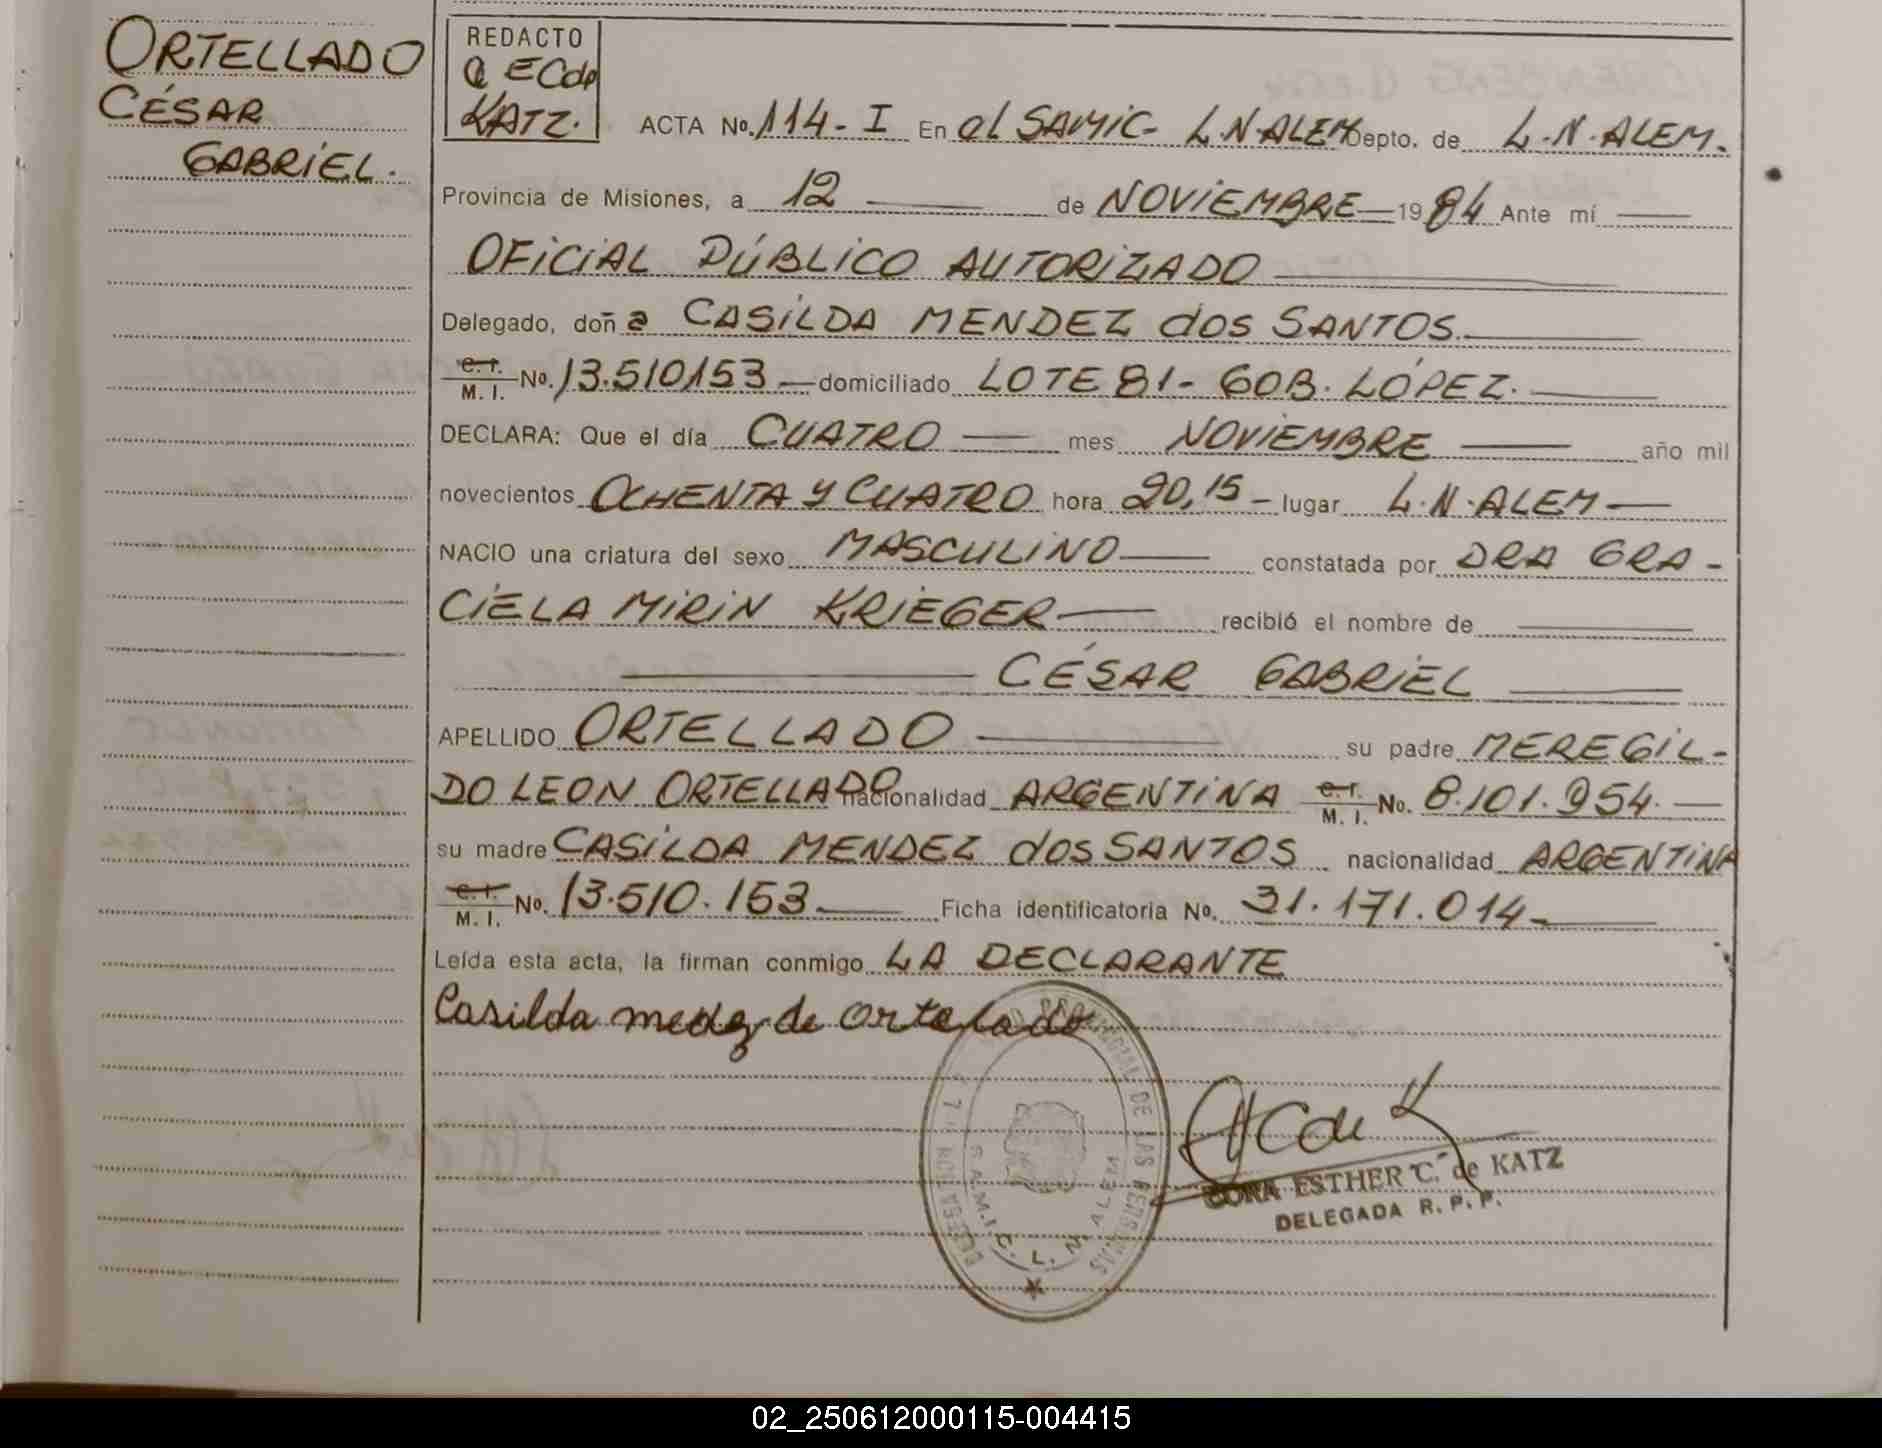 ORTELLADO
CÉSAR
GABRIEL.
REDACTO
ECde
KATZ.
ACTA No. 114-I En el SAMIC- L.N.ALEM Depto. de L.N.ALEM.
Provincia de Misiones, a 12 de NOVIEMBRE 1984 Ante mí
OFICIAL PÚBLICO AUTORIZADO
Delegado, doña CASILDA MENDEZ dos SANTOS.
C. I.
M. I. No. 13.510153 domiciliado LOTE 81- GOB. LÓPEZ.
DECLARA: Que el día CUATRO mes NOVIEMBRE año mil
novecientos OCHENTA Y CUATRO hora 20,15 - lugar L.N.ALEM
NACIO una criatura del sexo MASCULINO constatada por DRA GRA-
CIELA MIRIN KRIEGER recibió el nombre de
CÉSAR GABRIEL
APELLIDO ORTELLADO su padre MEREGIL-
DO LEON ORTELLADO nacionalidad ARGENTINA C. I. M. I. No. 8.101.954.
su madre CASILDA MENDEZ dos SANTOS nacionalidad ARGENTINA
C. I.
M. I. No. 13.510.153 Ficha identificatoria No. 31.171.014-
Leída esta acta, la firman conmigo LA DECLARANTE
Casilda medez de ortelado
DE LAS PERSONAS
S.A.M.I.C. L. N. ALEM
ESTHER C. de KATZ
DELEGADA R. P. P.
02_250612000115-004415